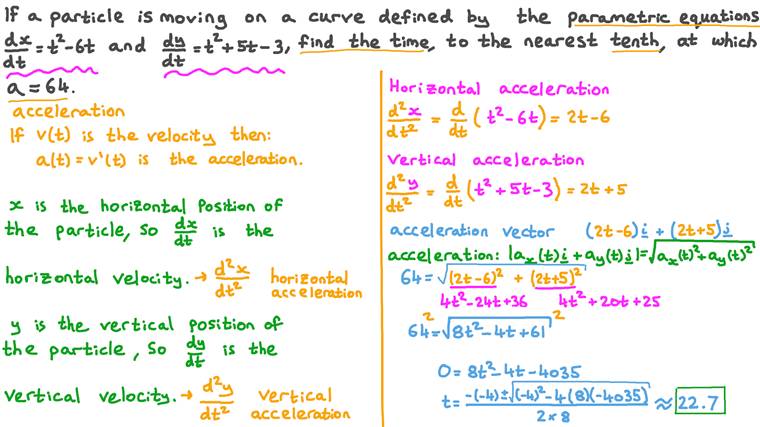 If a particle is moving on a curve defined by the parametric equations
dx/dt = t²-6t and dy/dt = t²+5t-3, find the time, to the nearest tenth, at which
a = 64.
acceleration
If v(t) is the velocity then:
a(t) = v'(t) is the acceleration.
x is the horizontal position of
the particle, so dx/dt is the
horizontal velocity. → d²x/dt² horizontal acceleration
y is the vertical position of
the particle, so dy/dt is the
vertical velocity. → d²y/dt² vertical acceleration
Horizontal acceleration
d²x/dt² = d/dt (t²-6t) = 2t-6
Vertical acceleration
d²y/dt² = d/dt (t²+5t-3) = 2t+5
acceleration vector (2t-6)i + (2t+5)j
acceleration: |aₓ(t)i + a_y(t)j| = √(aₓ(t)² + a_y(t)²)
64 = √((2t-6)² + (2t+5)²)
4t²-24t+36 4t²+20t+25
64² = √(8t²-4t+61)²
0 = 8t²-4t-4035
t = (-(-4) ± √((-4)²-4(8)(-4035)))/(2×8) ≈ 22.7